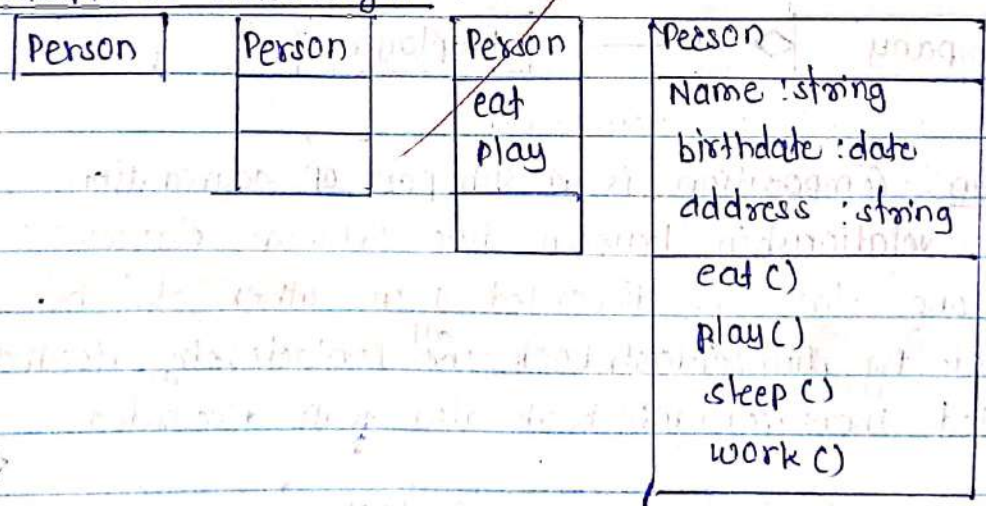 Person
Person
Person
eat
play
Person
Name : string
birthdate : date
address : string
eat ()
play ()
sleep ()
work ()